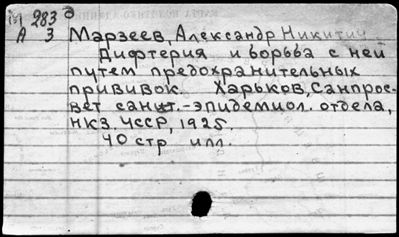 М 283 д
А 3 Марзеев, Александр Никитич
Дифтерия и борьба с ней
путем предохранительных
прививок. Харьков, Санпрос-
вет санит.-эпидемиол. отдела,
НКЗ. УССР, 1925.
40 стр илл.